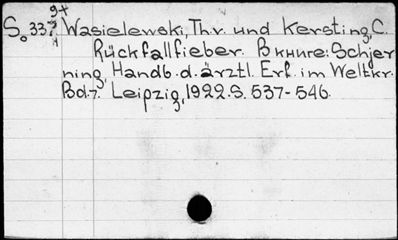 9x
S. 337 Wasielewski, Th. v. und Kersting, C.
Rückfallfieber. В книге: Schjer
ning, Handb. d. ärztl. Erf. im Weltkr.
Bd. 7. Leipzig, 1922. S. 537-546.